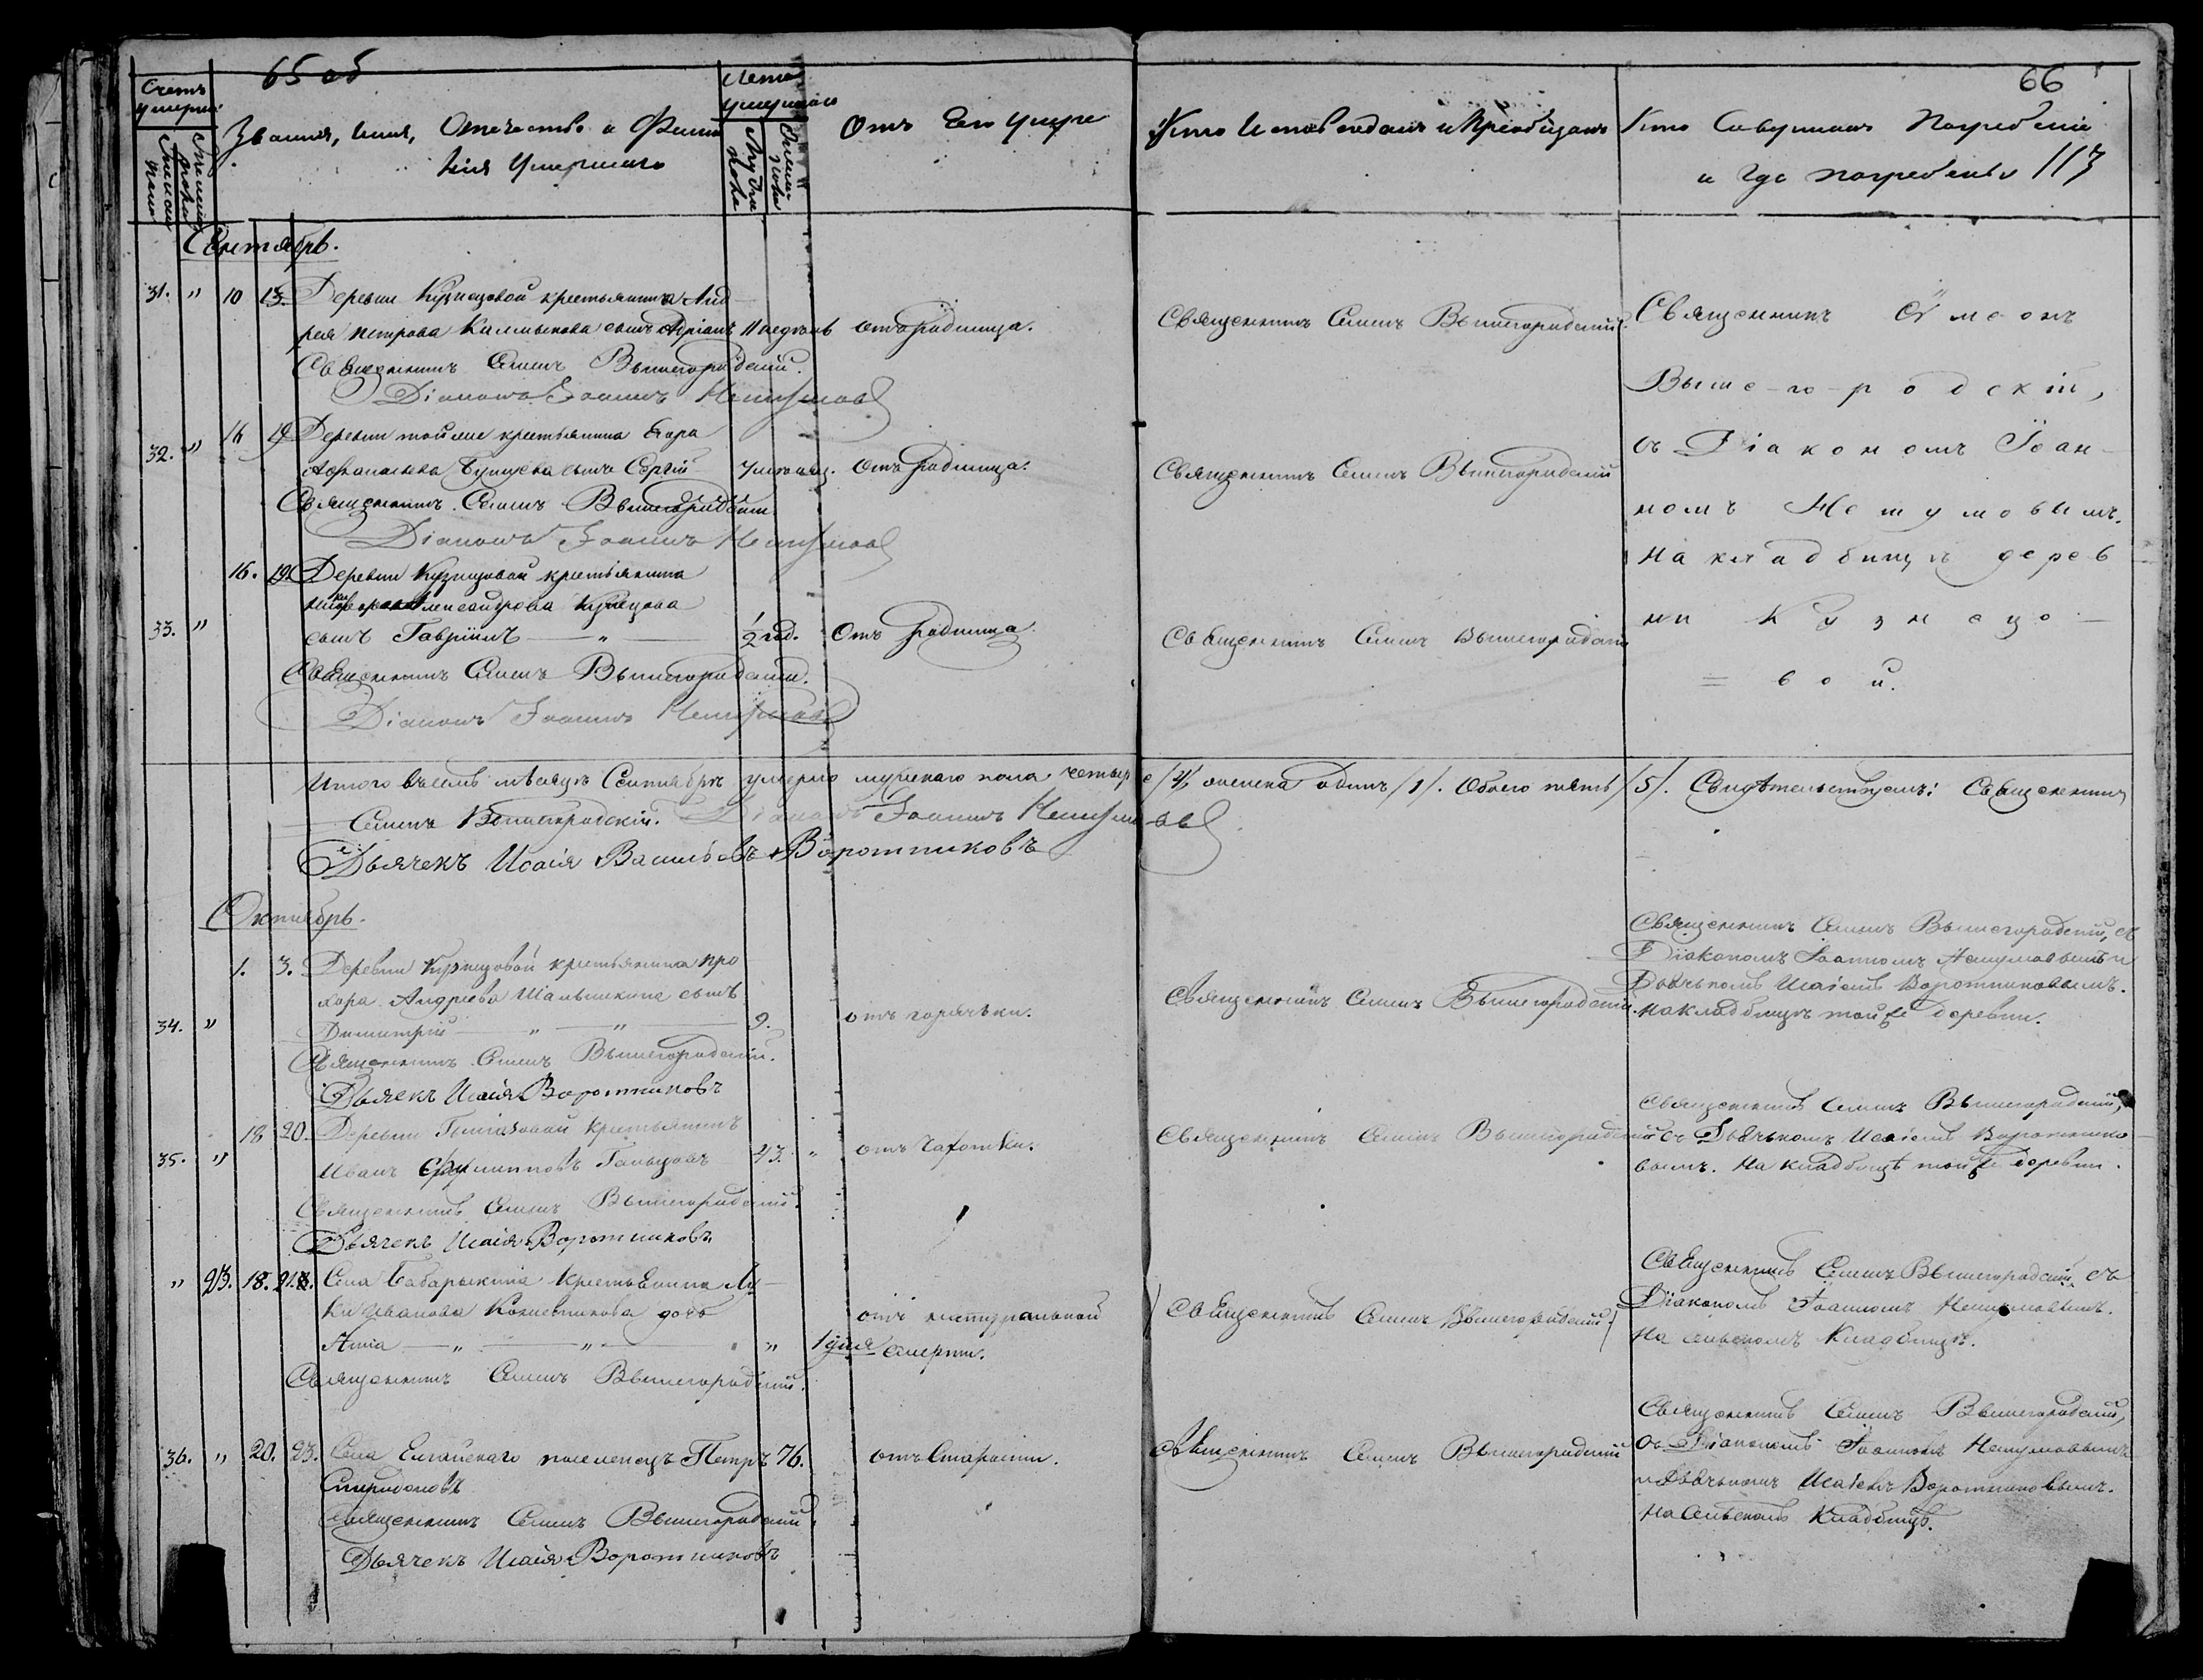 65 об
66
113
Счетъ умершихъ
Званія, имя, Отечество и Фами
лія Умершаго
Лета умершаго
Мужска пола
Женска пола
Отъ Чего умре
Кто Исповедалъ и Пріобщалъ
Кто Совершалъ Погребеніе
и где погребены
Сентябрь.
31. " 10 13. Деревни Кузнецовой крестьянина Анд
рея Петрова Калмыкова сынъ Адріанъ 11 недель отъ родимца.
Священникъ Симеонъ Вышегородскій.
Діаконъ Іоаннъ Нешумовъ
Священникъ Симеонъ Вышегородскій.
32. " 16 19 Деревни тойже крестьянина Егора
сынъ Сергій 7 месяц. Отъ родимца.
Священникъ Симеонъ Вышегородскій
Діаконъ Іоаннъ Нешумовъ
Священникъ Симеонъ Вышегородскій
16. 19. Деревни Кузнецовой крестьянина
Александрова Кузнецова
33. " сынъ Гавріилъ — " — 1/2 год. Отъ родимца
Священникъ Симеонъ Вышегородскій.
Діаконъ Іоаннъ Нешумовъ
Священникъ Симеонъ Вышегородскій
Священникъ Симеонъ
Выше-го-родскій,
съ Діакономъ Іоан-
номъ Нешумовымъ.
на кладбищѣ дерев
ни Кузнецо-
=вой.
Итого въ семъ мѣсяцѣ Сентябрѣ умерло мужскаго пола четыре /4/, женска одинъ /1/. Обоего пять /5/. Свидѣтельствуемъ: Священникъ
Симеонъ Вышегородскій. Діаконъ Іоаннъ Нешумовъ
Дьячекъ Исаія Васильевъ Воротниковъ
Октябрь.
1. 3. Деревни Кузнецовой крестьянина Про
хора Андреева Шалышкина сынъ
34. " Димитрій — " — " — 9. отъ горячки.
Священникъ Симеонъ Вышегородскій.
Дьячекъ Исаія Воротниковъ
Священникъ Симеонъ Вышегородскій.
Священникъ Симеонъ Вышегородскій, съ
Діакономъ Іоанномъ Нешумовымъ и
Дьячькомъ Исаіемъ Воротниковымъ.
на кладбищѣ той же деревни.
18 20. Деревни крестьянинъ
35. " Иванъ Филипповъ Гальцовъ 43. " отъ Чахотки.
Священникъ Симеонъ Вышегородскій.
Дьячекъ Исаія Воротниковъ
Священникъ Симеонъ Вышегородскій
Священникъ Симеонъ Вышегородскій,
съ Дьячькомъ Исаіемъ Воротнико
вымъ. На кладбищѣ той же деревни.
" 23. 18. 21. Села Бабарыкина крестьянина Лу-
ки Иванова Кожевникова дочь
Анна — " — " — " 1 дня отъ натуральной
смерти.
Священникъ Симеонъ Вышегородскій.
Священникъ Симеонъ Вышегородскій
Священникъ Симеонъ Вышегородскій, съ
Діакономъ Іоанномъ Нешумовымъ.
На сельскомъ Кладбищѣ.
36. " 20. 23. Села Еланскаго поселенецъ Петръ 76. отъ Старости.
Спиридоновъ
Священникъ Симеонъ Вышегородскій
Дьячекъ Исаія Воротниковъ
Священникъ Симеонъ Вышегородскій
Священникъ Симеонъ Вышегородскій,
съ Діакономъ Іоанномъ Нешумовымъ
и Дьячькомъ Исаіемъ Воротниковымъ.
На Сельскомъ Кладбищѣ.